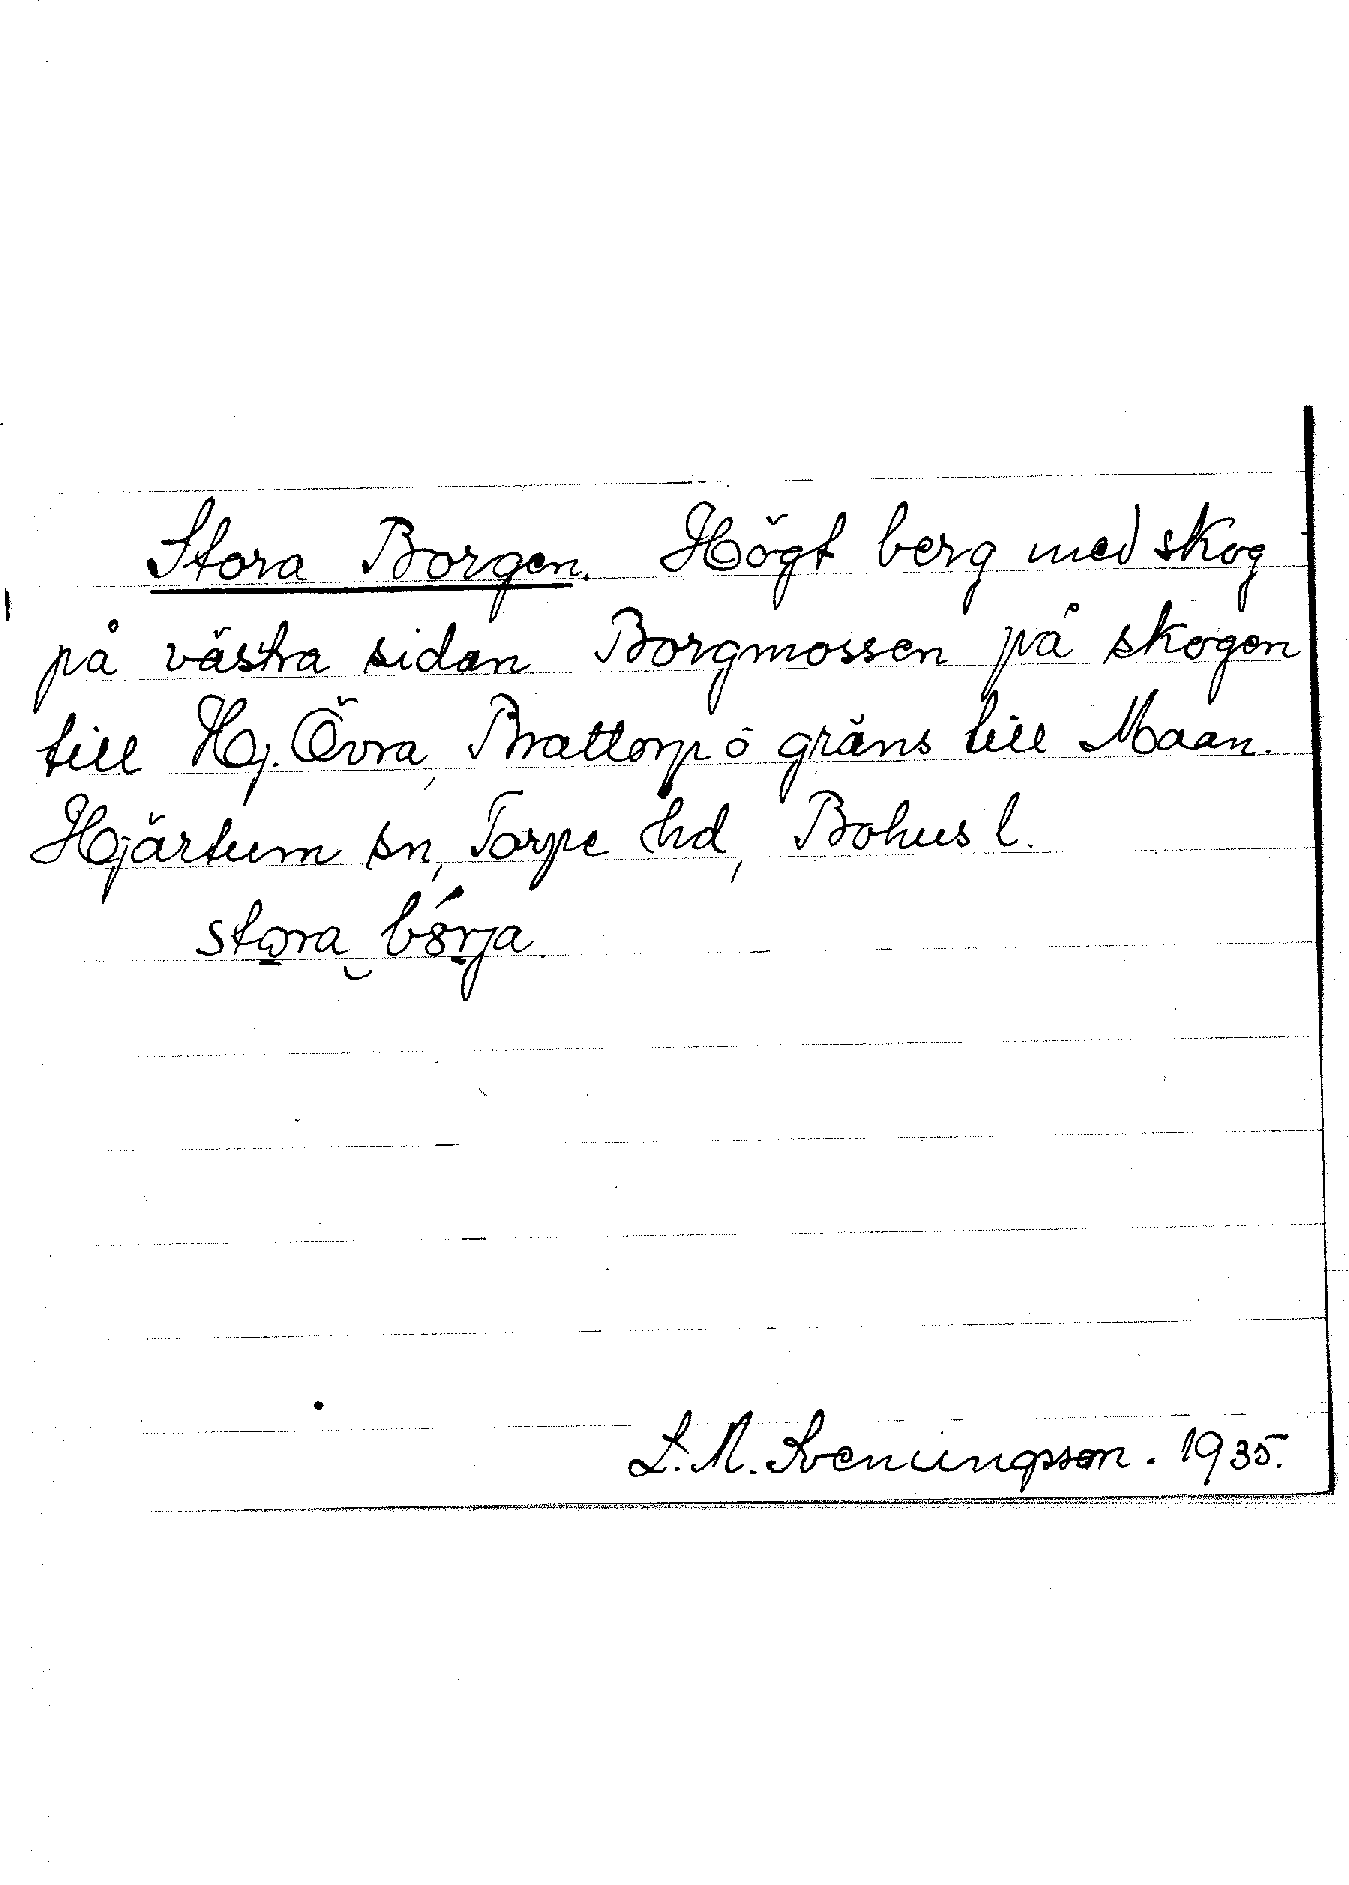 Stora Borgen. Högt berg med skog
på västra sidan Borgmossen på skogen
till Hj. Övra, Brattorp o gräns till Maan.
Hjärtum sn, Torpe hd, Bohus l.
stora börja
L. M. Svenungsson. 1935.